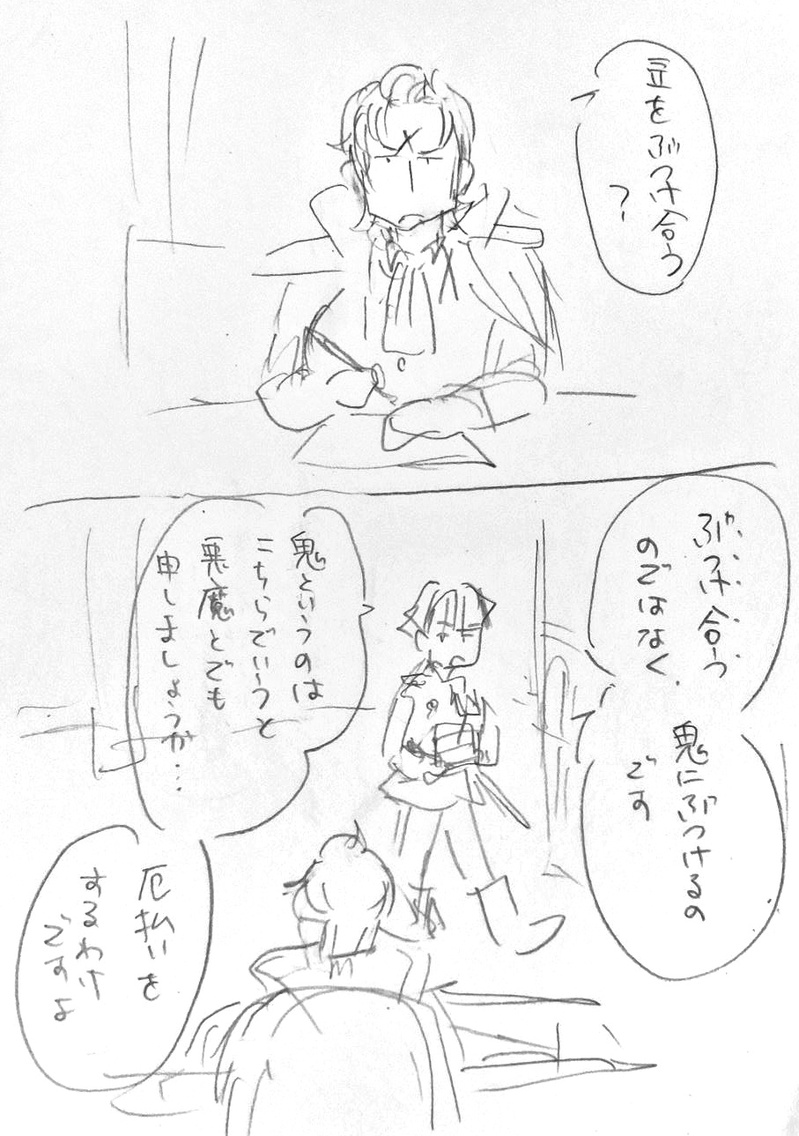 豆を
ぶつけ合う
?
ぶつけ合う
のではなく、
鬼にぶつけるの
です
鬼というのは
こちらでいうと
悪魔とでも
申しましょうか…
厄払いを
するわけ
ですよ